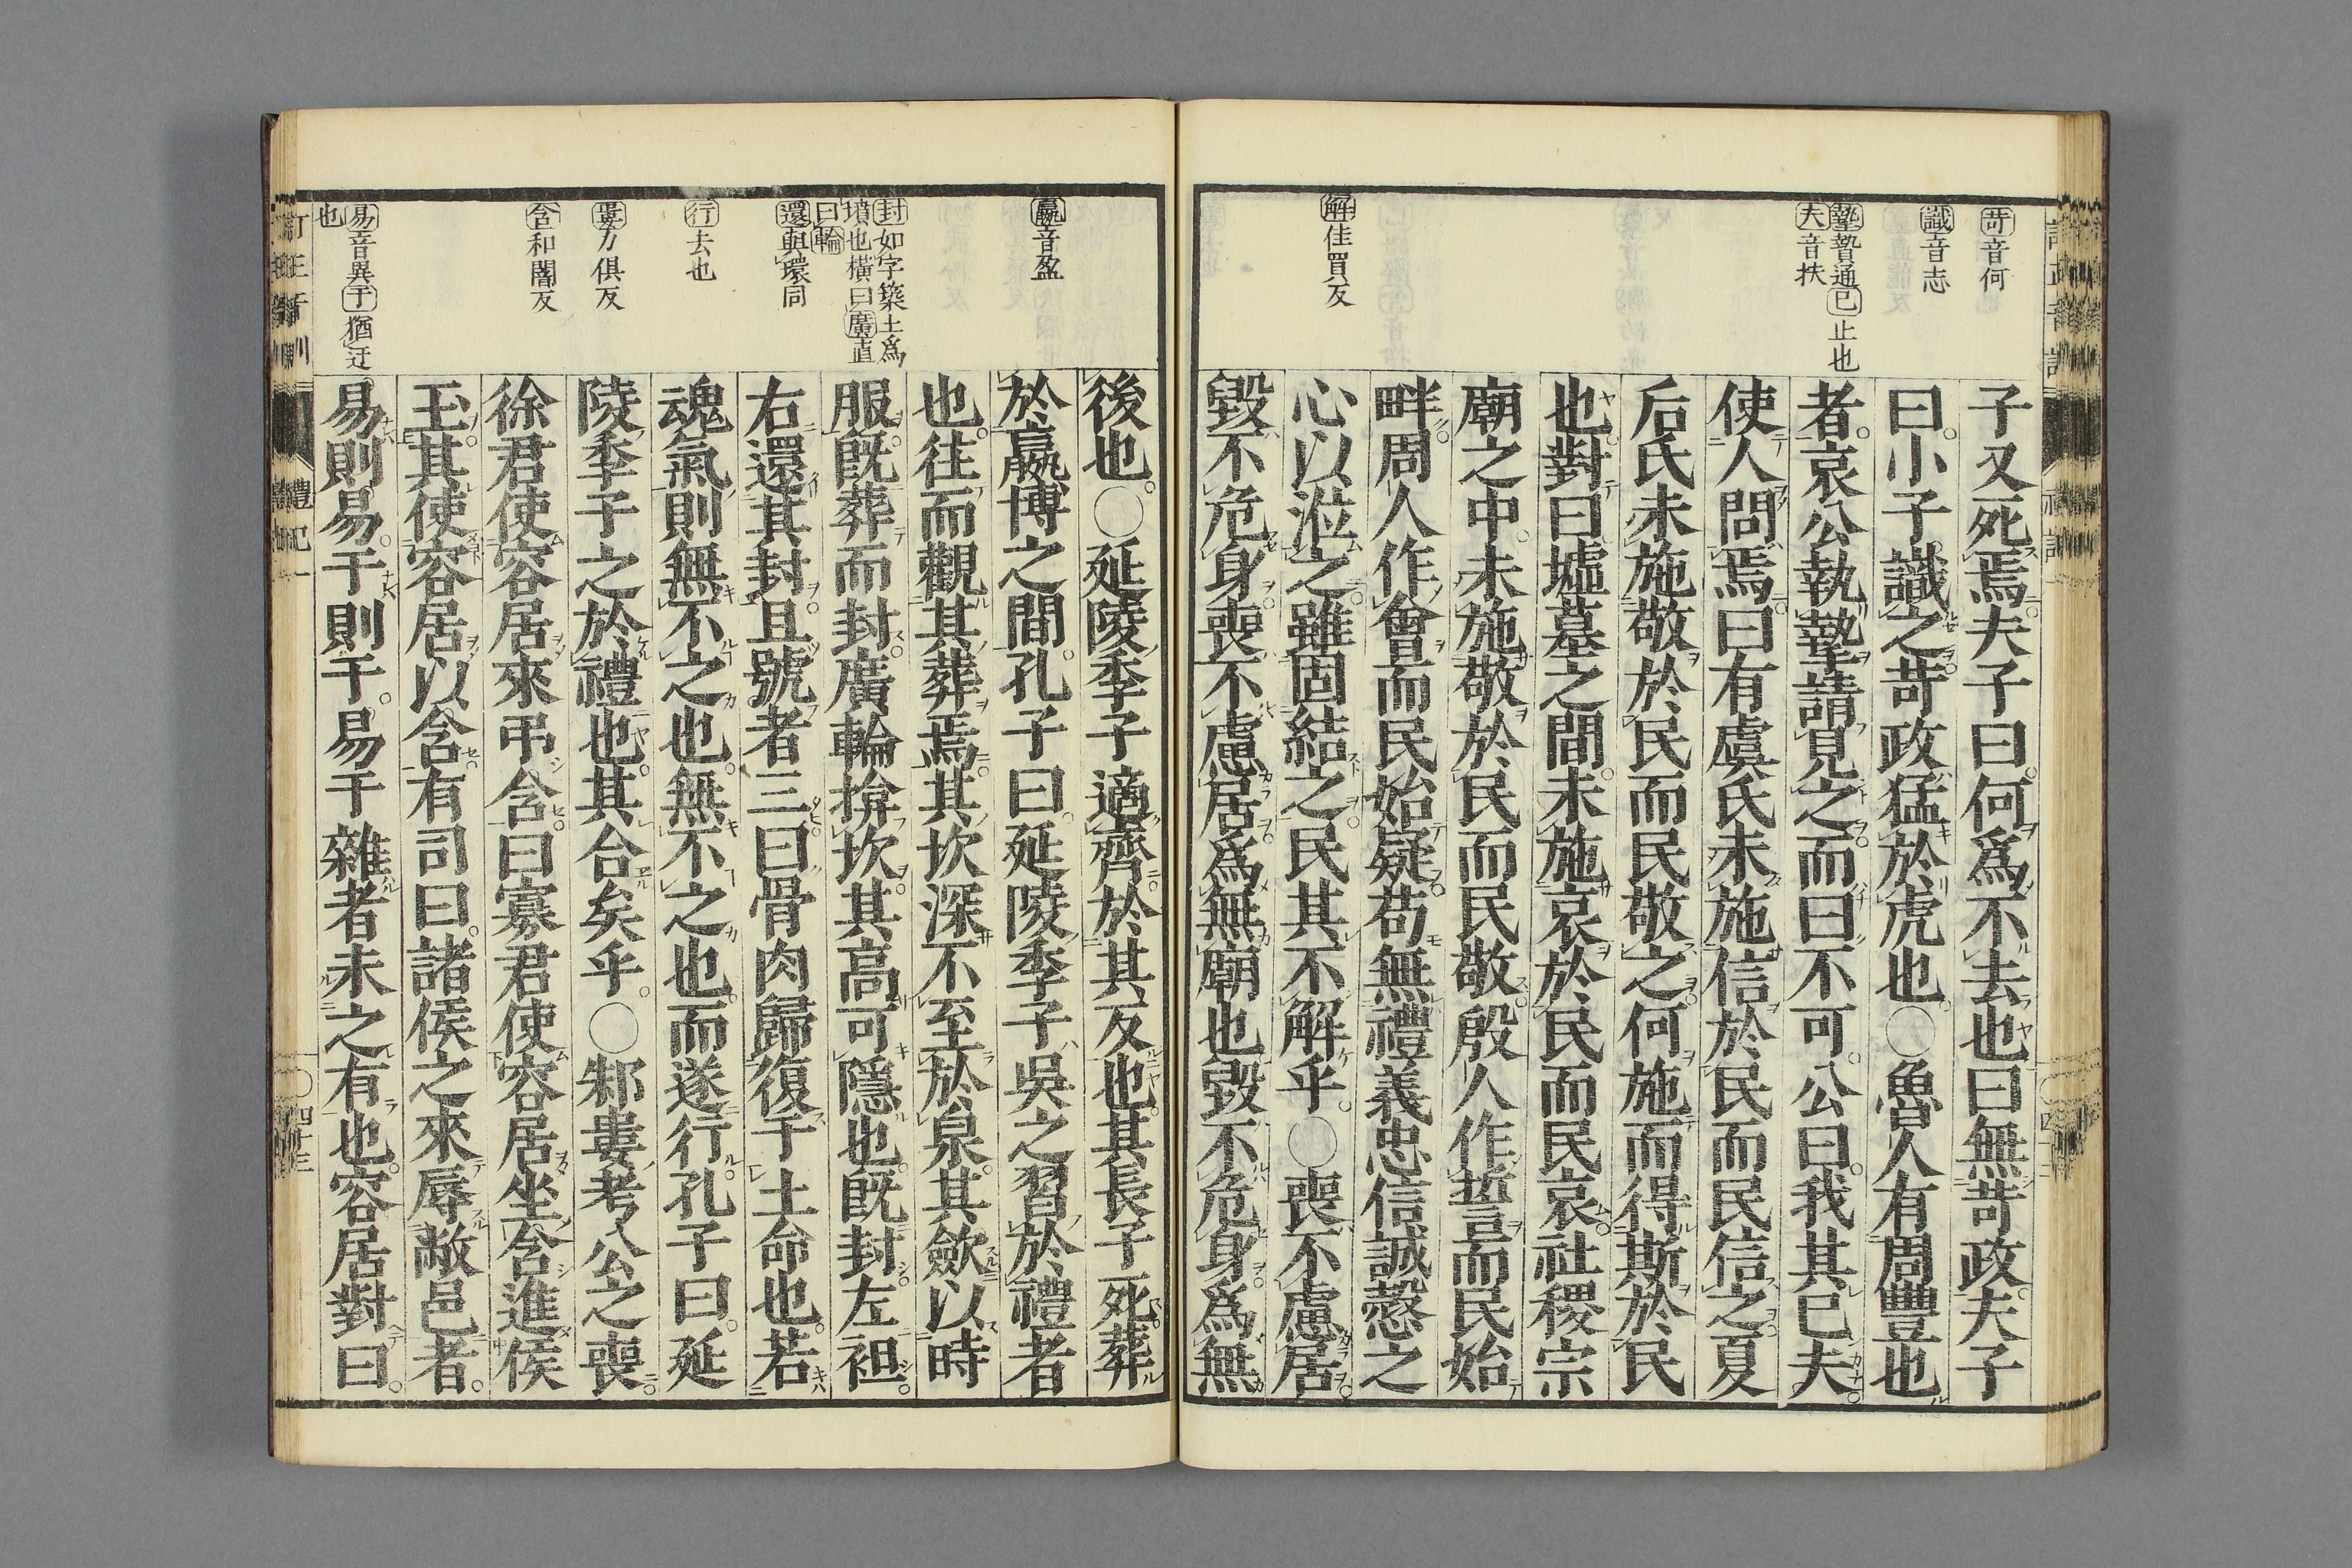 苛音何
識音志
摯贄通已止也
夫音扶
解佳買反
子又死焉夫子曰何爲不去也曰無苛政夫子
曰小子識之苛政猛於虎也○魯人有周豐也
者哀公執摯請見之而曰不可公曰我其已夫
使人問焉曰有虞氏未施信於民而民信之夏
后氏未施敬於民而民敬之何施而得斯於民
也對曰墟墓之間未施哀於民而民哀社稷宗
廟之中未施敬於民而民敬殷人作誓而民始
畔周人作會而民始疑苟無禮義忠信誠慤之
心以涖之雖固結之民其不解乎○喪不慮居
毀不危身喪不慮居爲無廟也毀不危身爲無
嬴音盈
封如字築土爲
墳也橫曰廣直
曰輪
還與環同
行去也
婁力俱反
含和闇反
易音異于猶迂
也
後也○延陵季子適齊於其反也其長子死葬
於嬴博之間孔子曰延陵季子吳之習於禮者
也往而觀其葬焉其坎深不至於泉其斂以時
服既葬而封廣輪揜坎其高可隱也既封左袒
右還其封且號者三曰骨肉歸復于土命也若
魂氣則無不之也無不之也而遂行孔子曰延
陵季子之於禮也其合矣乎○邾婁考公之喪
徐君使容居來弔含曰寡君使容居坐含進侯
玉其使容居以含有司曰諸侯之來辱敝邑者
易則易于則于易于雜者未之有也容居對曰
禮記一
四十三